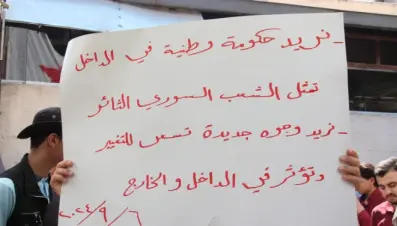 - نريد حكومة وطنية في الداخل
تمثل الشعب السوري الثائر
- نريد وجوه جديدة تسعى للتغير
وتؤثر في الداخل والخارج
٢٠٢٤/٩/٦